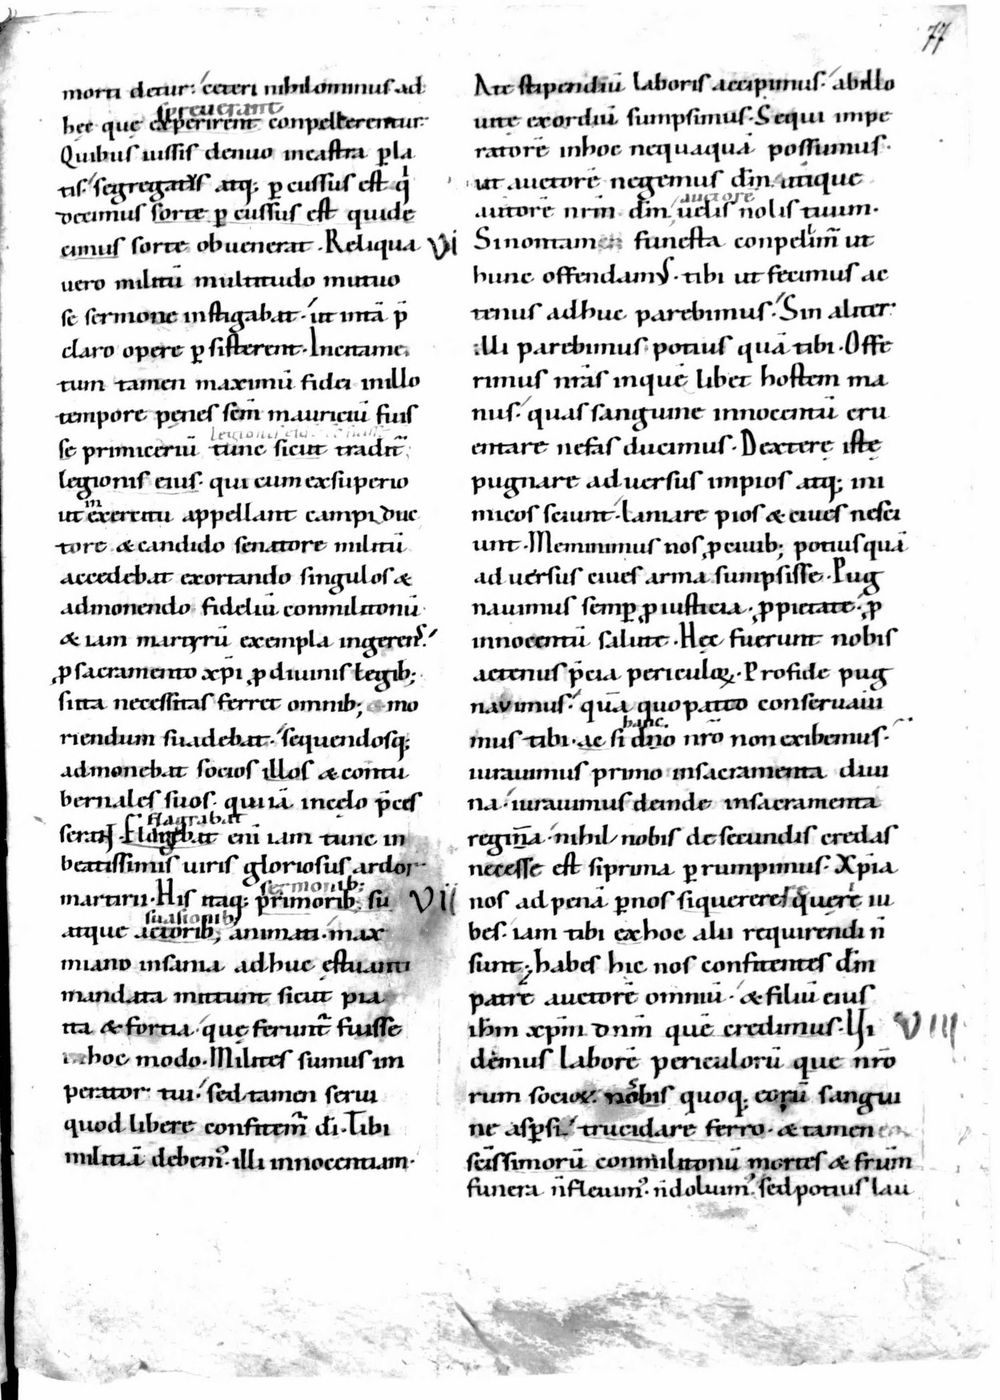 77
morti detur: ceteri nihilominus ad
spreuerant
hec que experirent conpellerentur.
Quibus iussis denuo incastra ꝑla
tis. segregatus atq; ꝑcussus est qͥ
decimus sorte ꝑcussus est quide
cimus sorte obuenerat. Reliqua VI
uero militū multitudo mutuo
se sermone instigabat. ut intā p̄
claro opere ꝑsisterent. Incitamen
tum tamen maximū fidei inillo
tempore penes scm̄ mauriciū fuis
se primiceriū tunc sicut tradit̄
legionis eius. qui cum exsuperio
ut in exercitu appellant campi duc
tore & candido senatore militū
accedebat exortando singulos &
admonendo fideliū conmilitonū
& iam martyrū exempla ingerens.
ꝓsacramento xp̄i ꝓdiuinis legib;
si ita necessitas ferret omnib; mo
riendum suadebat. sequendosq;
admonebat socios illos & contu
bernales suos. qui iā incelo p̄ces
flagrabat
serant. enī iam tunc in
beatissimis uiris gloriosus ardor
sermonib;
martirii. His itaq; primorib; su VII
suasionib;
atque actorib; animati. max
miano insania adhuc estuanti
mandata mittunt sicut pia
ita & fortia. que ferunt̄ fuisse
inhoc modo. Milites sumus im
perator tui. sed tamen serui
quod libere confitem̄ di. Tibi
militiā debem᷒. illi innocentiam.
A te stipendiū laboris accipimus. abillo
uite exordiū sumpsimus. Sequi impe
ratorē inhoc nequaquā possumus.
ut auctorē negemus dm̄ utique
auctore
autorē nrm̄ dm̄ uelis nolis tuum.
Si nontam funesta conpelimur̄ ut
hunc offendam᷒. tibi ut fecimus ac
tenus adhuc parebimus. Sin aliter
illi parebimus potius quā tibi. Offe
rimus nrās inquē libet hostem ma
nus. quas sanguine innocentū cru
entare nefas ducimus. Dextere iste
pugnare aduersus impios atq; ini
micos sciunt. laniare pios & ciues nesci
unt. Meminimus nos ꝓciuib; potius quā
aduersus ciues arma sumpsisse. Pug
nauimus semꝑ ꝓiusticia. ꝓpietate. ꝓ
innocentū salute. Hec fuerunt nobis
actenus p̄cia periculoꝝ. Profide pug
nauimus. quā quo pacto conseruaui
hanc
mus tibi. ac si dn̄o nrō non exibemus.
iurauimus primo insacramenta diui
na. iurauimus deinde insacramenta
regn̄a. nihil nobis de secundis credas
necesse est si prima ꝑrumpimus. Xp̄ia
nos ad penā ꝑnos si quereres querē iu
bes. iam tibi exhoc alii requirendi n̄
sunt. habes hic nos confitentes dm̄
patrē auctorē omniū. & filiū eius
ihm̄ xpm̄ dnm̄ quē credimus. Vi VIII
demus laborē periculorū que nrō
rum socioꝝ. nobis quoq; eorū sangui
ne aspsi. trucidare ferro. & tamen
scissimorū conmilitonū mortes & frum̄
funera n̄ fleuim᷒. n̄ doluim᷒. sed potius lau